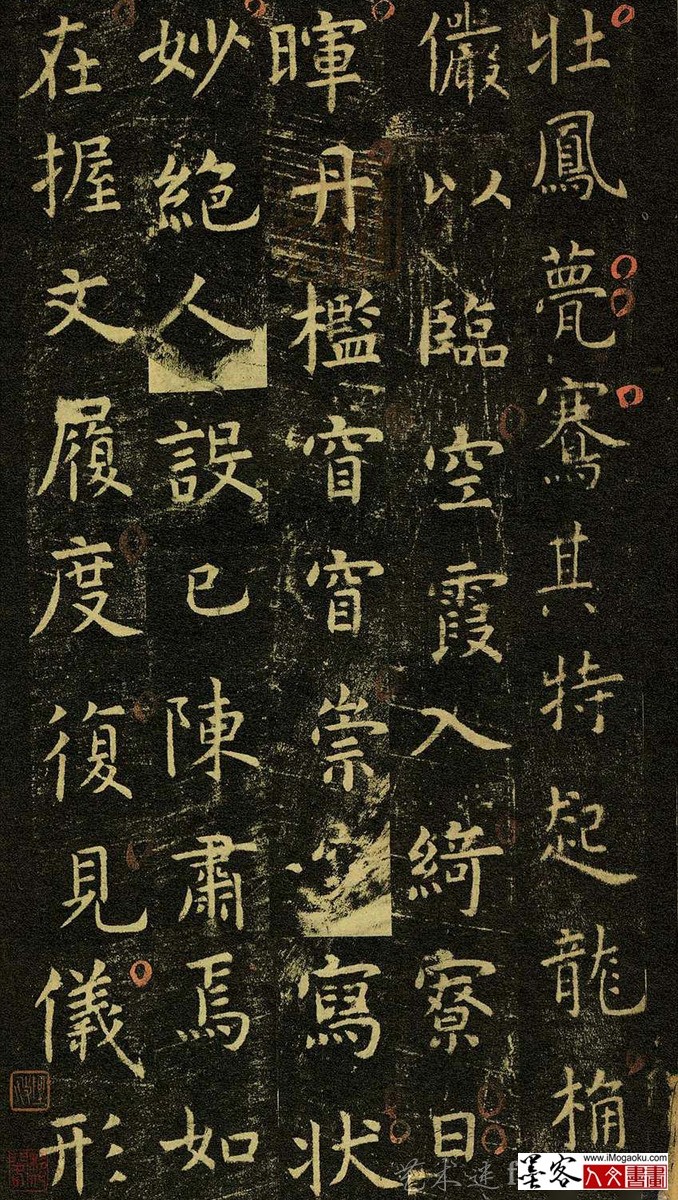 壯鳳甍騫其特起龍桷
儼以臨空霞入綺寮日
暉丹檻窅窅崇寫狀
妙絕人設已陳肅焉如
在握文履度復見儀形
墨客
www.iMogaoku.com
人文書畫